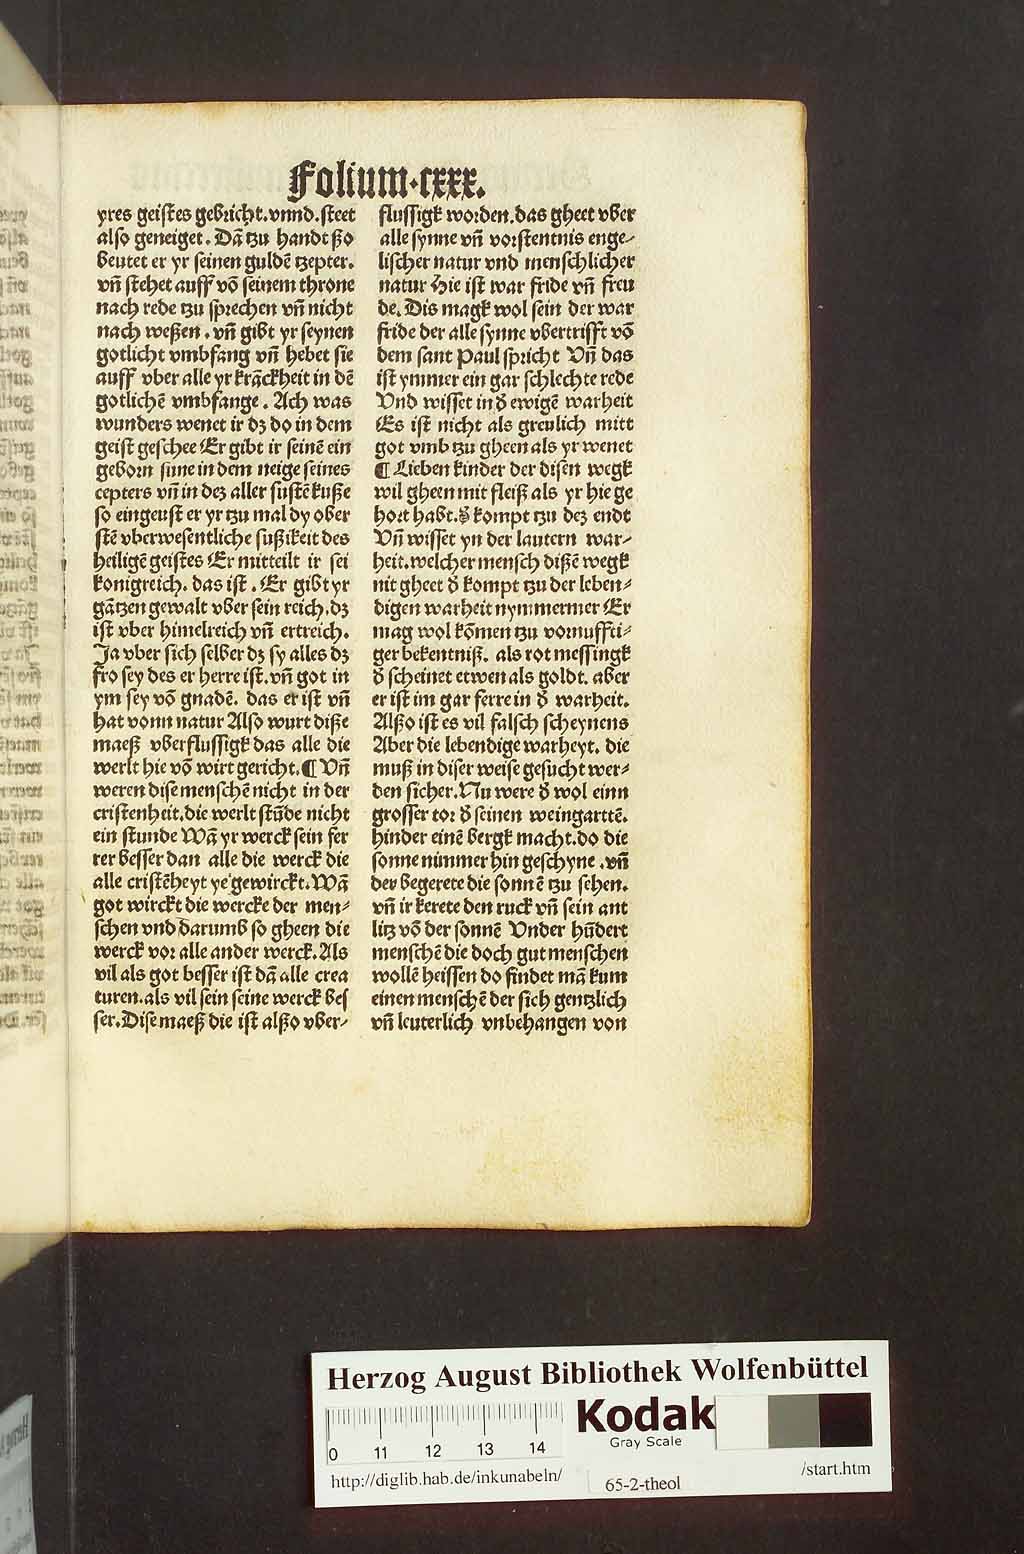 Folium·cxxx.
yres geistes gebricht.vnnd.steet
also geneiget. Dā tzu handt ßo
beutet er yr seinen guldē tzepter.
vn̄ stehet auff vō seinem throne
nach rede tzu sprechen vn̄ nicht
nach weßen. vn̄ gibt yr seynen
gotlicht vmbfang vn̄ hebet sie
auff vber alle yr krāckheit in dē
gotlichē vmbfange. Ach was
wunders wenet ir dz do in dem
geist geschee Er gibt ir seinē ein
geborn sune in dem neige seines
cepters vn̄ in dez aller sustē kuße
so eingeust er yr tzu mal dy ober
stē vberwesentliche sußikeit des
heiligē geistes Er mitteilt ir sei
konigreich. das ist. Er gibt yr
gātzen gewalt vber sein reich.dz
ist vber himelreich vn̄ ertreich.
Ja vber sich selber dz sy alles dz
fro sey des er herre ist.vn̄ got in
ym sey vō gnadē. das er ist vn̄
hat vonn natur Also wurt diße
maeß vberflussigk das alle die
werlt hie vō wirt gericht.¶ Vn̄
weren dise menschē nicht in der
cristenheit.die werlt stūde nicht
ein stunde Wā yr werck sein fer
rer besser dan alle die werck die
alle cristēheyt ye gewirckt.Wā
got wirckt die wercke der men⸗
schen vnd darumb so gheen die
werck vor alle ander werck. Als
vil als got besser ist dā alle crea
turen.als vil sein seine werck bes
ser.Dise maeß die ist alßo vber⸗
flussigk worden.das gheet vber
alle synne vn̄ vorstentnis enge⸗
lischer natur vnd menschlicher
natur Hie ist war fride vn̄ freu
de. Dis magk wol sein der war
fride der alle synne vbertrifft vō
dem sant Paul spricht Vn̄ das
ist ymmer ein gar schlechte rede
Vnd wisset in d̄ ewigē warheit
Es ist nicht als greulich mitt
got vmb tzu gheen als yr wenet
¶ Lieben kinder der disen wegk
wil gheen mit fleiß als yr hie ge
hort habt.d̄ kompt tzu dez endt
Vn̄ wisset yn der lautern war⸗
heit.welcher mensch dißē wegk
nit gheet d̄ kompt tzu der leben⸗
digen warheit nymmermer Er
mag wol kōmen tzu vornuffti⸗
ger bekentniß. als rot messingk
d̄ scheinet etwen als goldt. aber
er ist im gar ferre in d̄ warheit.
Alßo ist es vil falsch scheynens
Aber die lebendige warheyt. die
muß in diser weise gesucht wer⸗
den sicher. Nu were d̄ wol einn
grosser tor d̄ seinen weingarttē.
hinder einē bergk macht.do die
sonne nimmer hin geschyne .vn̄
der begerete die sonnē tzu sehen.
vn̄ ir kerete den ruck vn̄ sein ant
litz vō der sonnē Vnder hūdert
menschē die doch gut menschen
wollē heissen do findet mā kum
einen menschē der sich gentzlich
vn̄ leuterlich vnbehangen von
Herzog August Bibliothek Wolfenbüttel
Kodak
Gray Scale
0 11 12 13 14
http://diglib.hab.de/inkunabeln/
65-2-theol
/start.htm